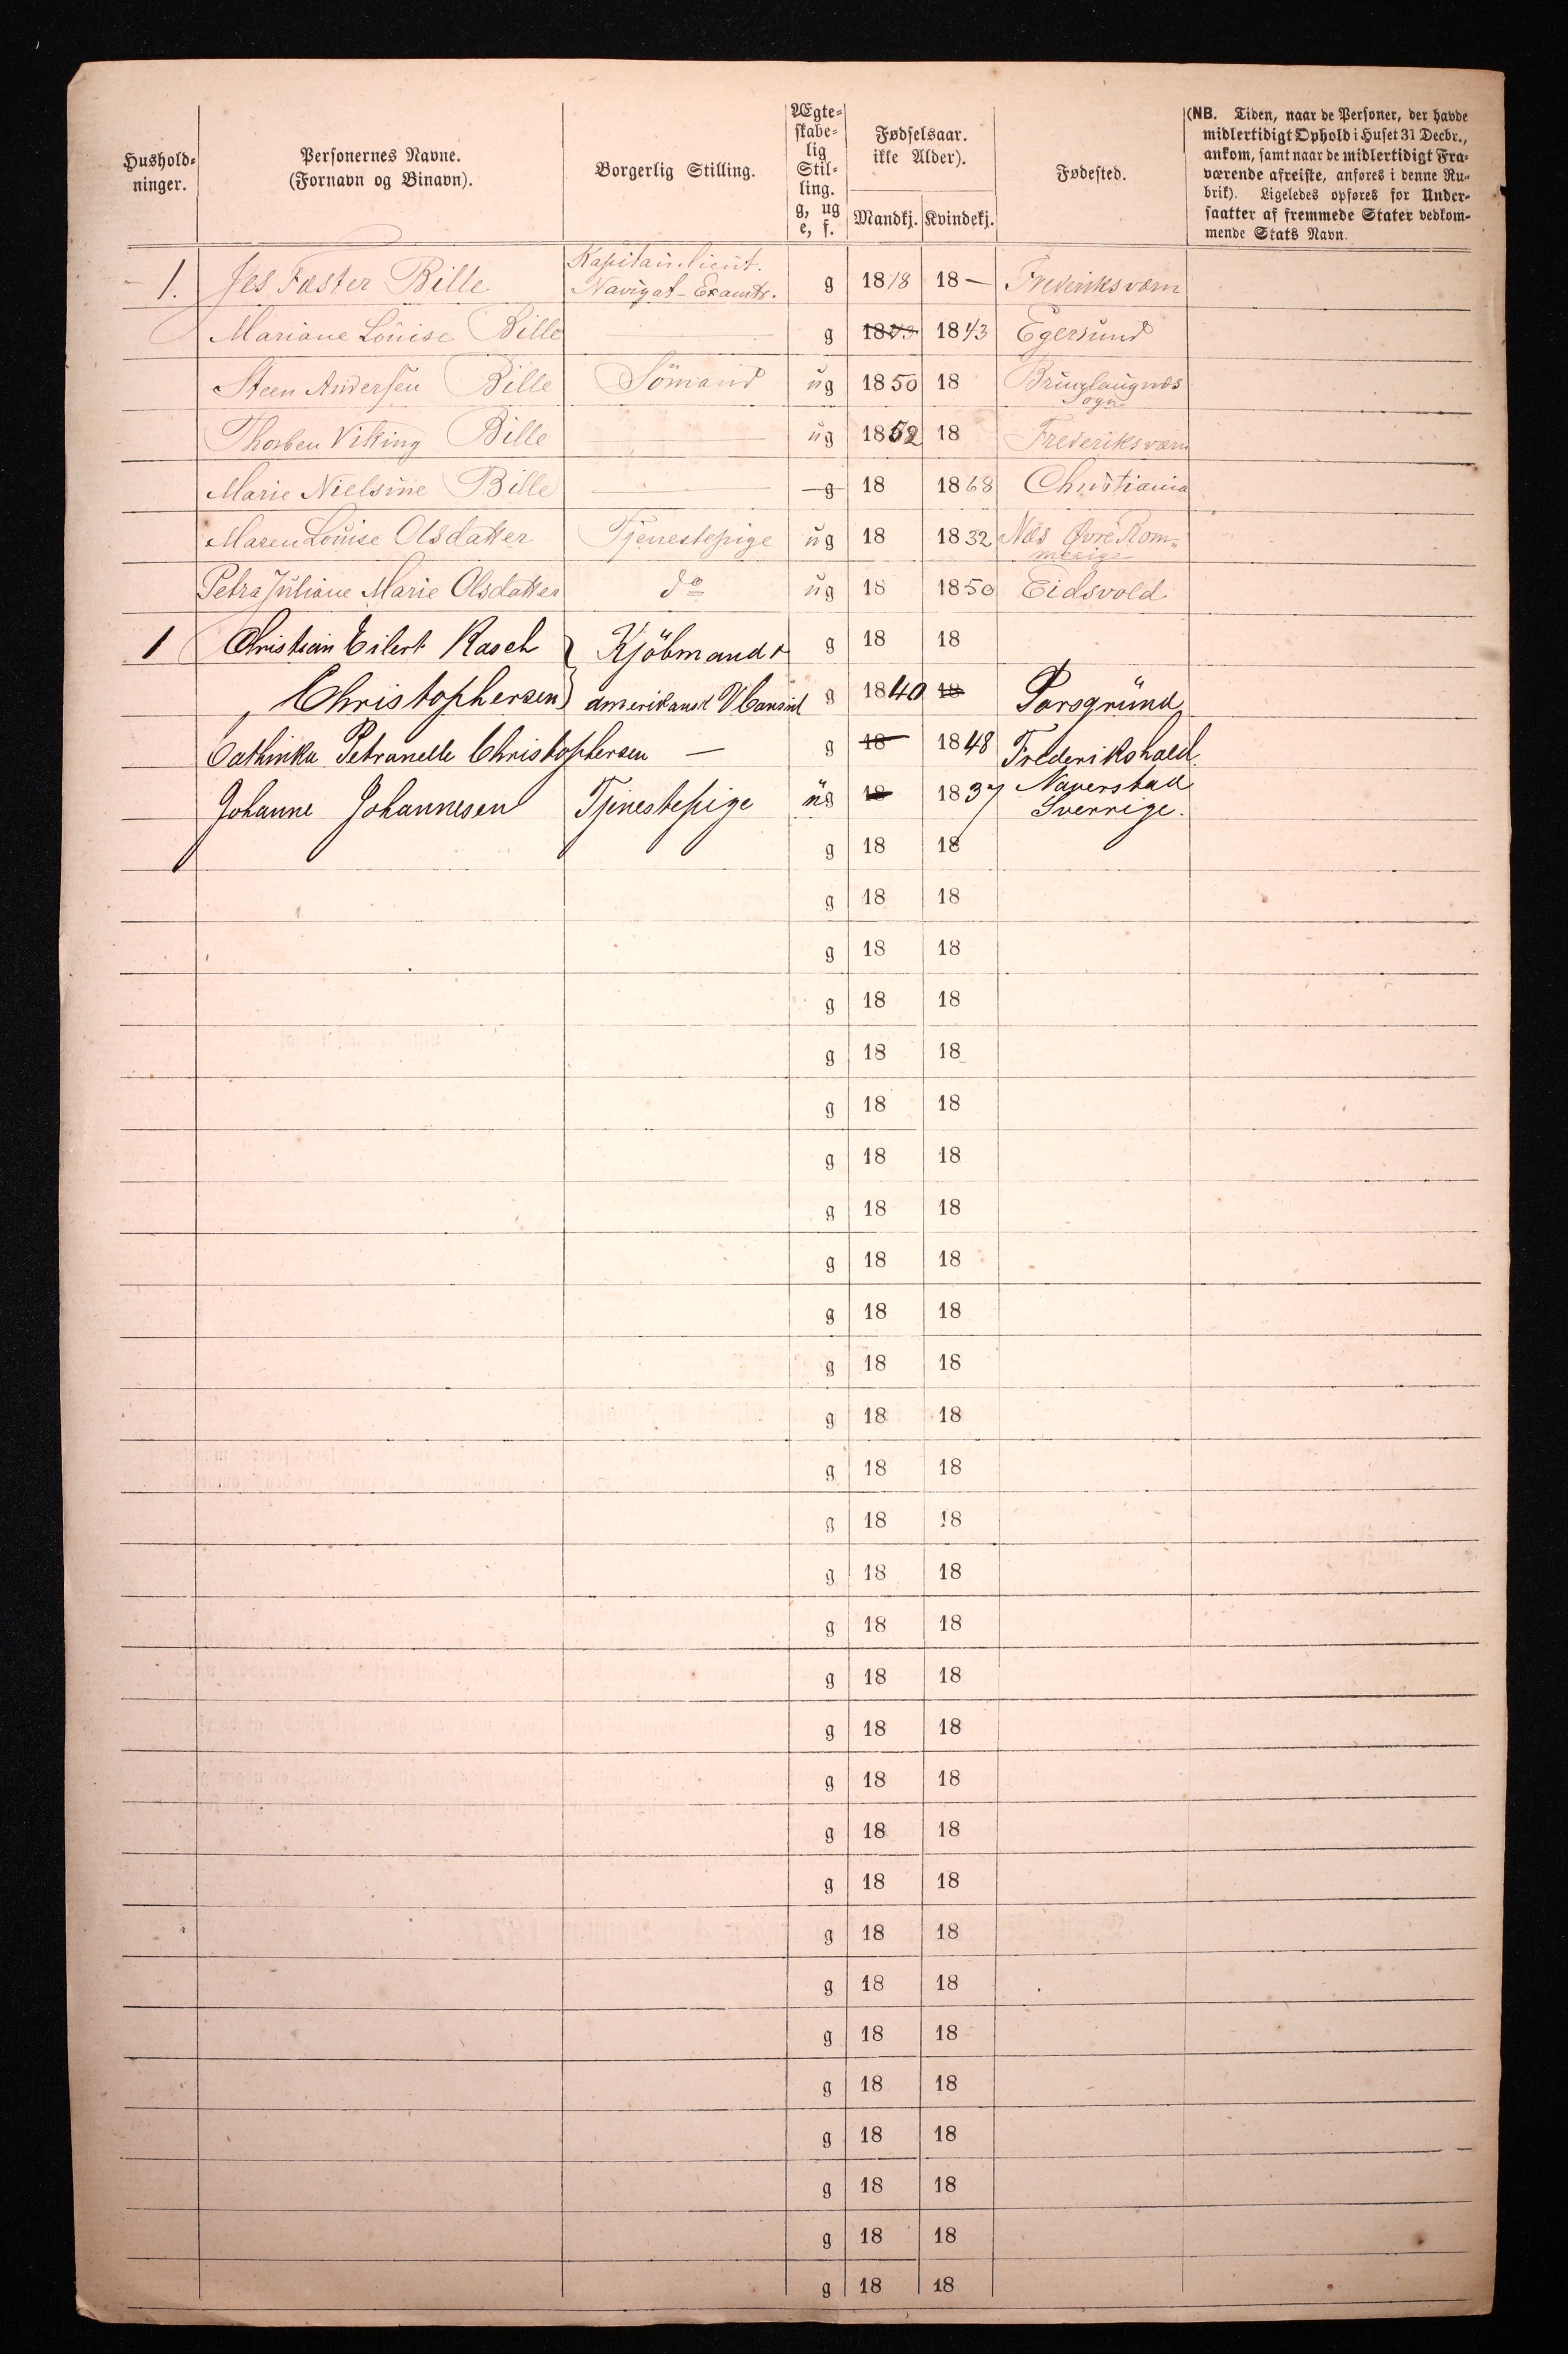 Hushold-
ninger.
Personernes Navne.
(Fornavn og Binavn).
Borgerlig Stilling.
Ægte-
skabe-
lig
Stil-
ling.
g, ug
e, f.
Fødselsaar.
ikke Alder).
Mandkj. Kvindekj.
Fødested.
(NB. Tiden, naar de Personer, der havde
midlertidigt Ophold i Huset 31 Decbr.,
ankom, samt naar de midlertidigt Fra-
værende afreiste, anføres i denne Ru-
brik). Ligeledes opføres for Under-
saatter af fremmede Stater vedkom-
mende Stats Navn.
Kapitainlieut.
1. Jes Faster Bille Navigat-Examts. g 1818 18— Frederiksværn
Mariane Louise Bille — g 1843 1843 Egersund
Steen Andersen Bille Sömand ug 1850 18 Brunlaugnæs
Sogn
Thorben Viking Bille — ug 1852 18 Frederiksværn
Marie Nielsine Bille — g 18 1868 Christiania
Maren Louise Olsdatter Tjenestepige ug 18 1832 Næs Øvre Rom-
merige
Petra Juliane Marie Olsdatter do ug 18 1850 Eidsvold
1 Christian Eilert Rasch } Kjöbmand & g 18 18
Christophersen amerikansk VConsul g 1840 18 Porsgrund
Cathinka Petranelle Christophersen — g 18 1848 Frederikshald
Johanne Johannesen Tjenestepige ug 18 1837 Naverstad
Sverrige.
g 18 18
g 18 18
g 18 18
g 18 18
g 18 18
g 18 18
g 18 18
g 18 18
g 18 18
g 18 18
g 18 18
g 18 18
g 18 18
g 18 18
g 18 18
g 18 18
g 18 18
g 18 18
g 18 18
g 18 18
g 18 18
g 18 18
g 18 18
g 18 18
g 18 18
g 18 18
g 18 18
g 18 18
g 18 18